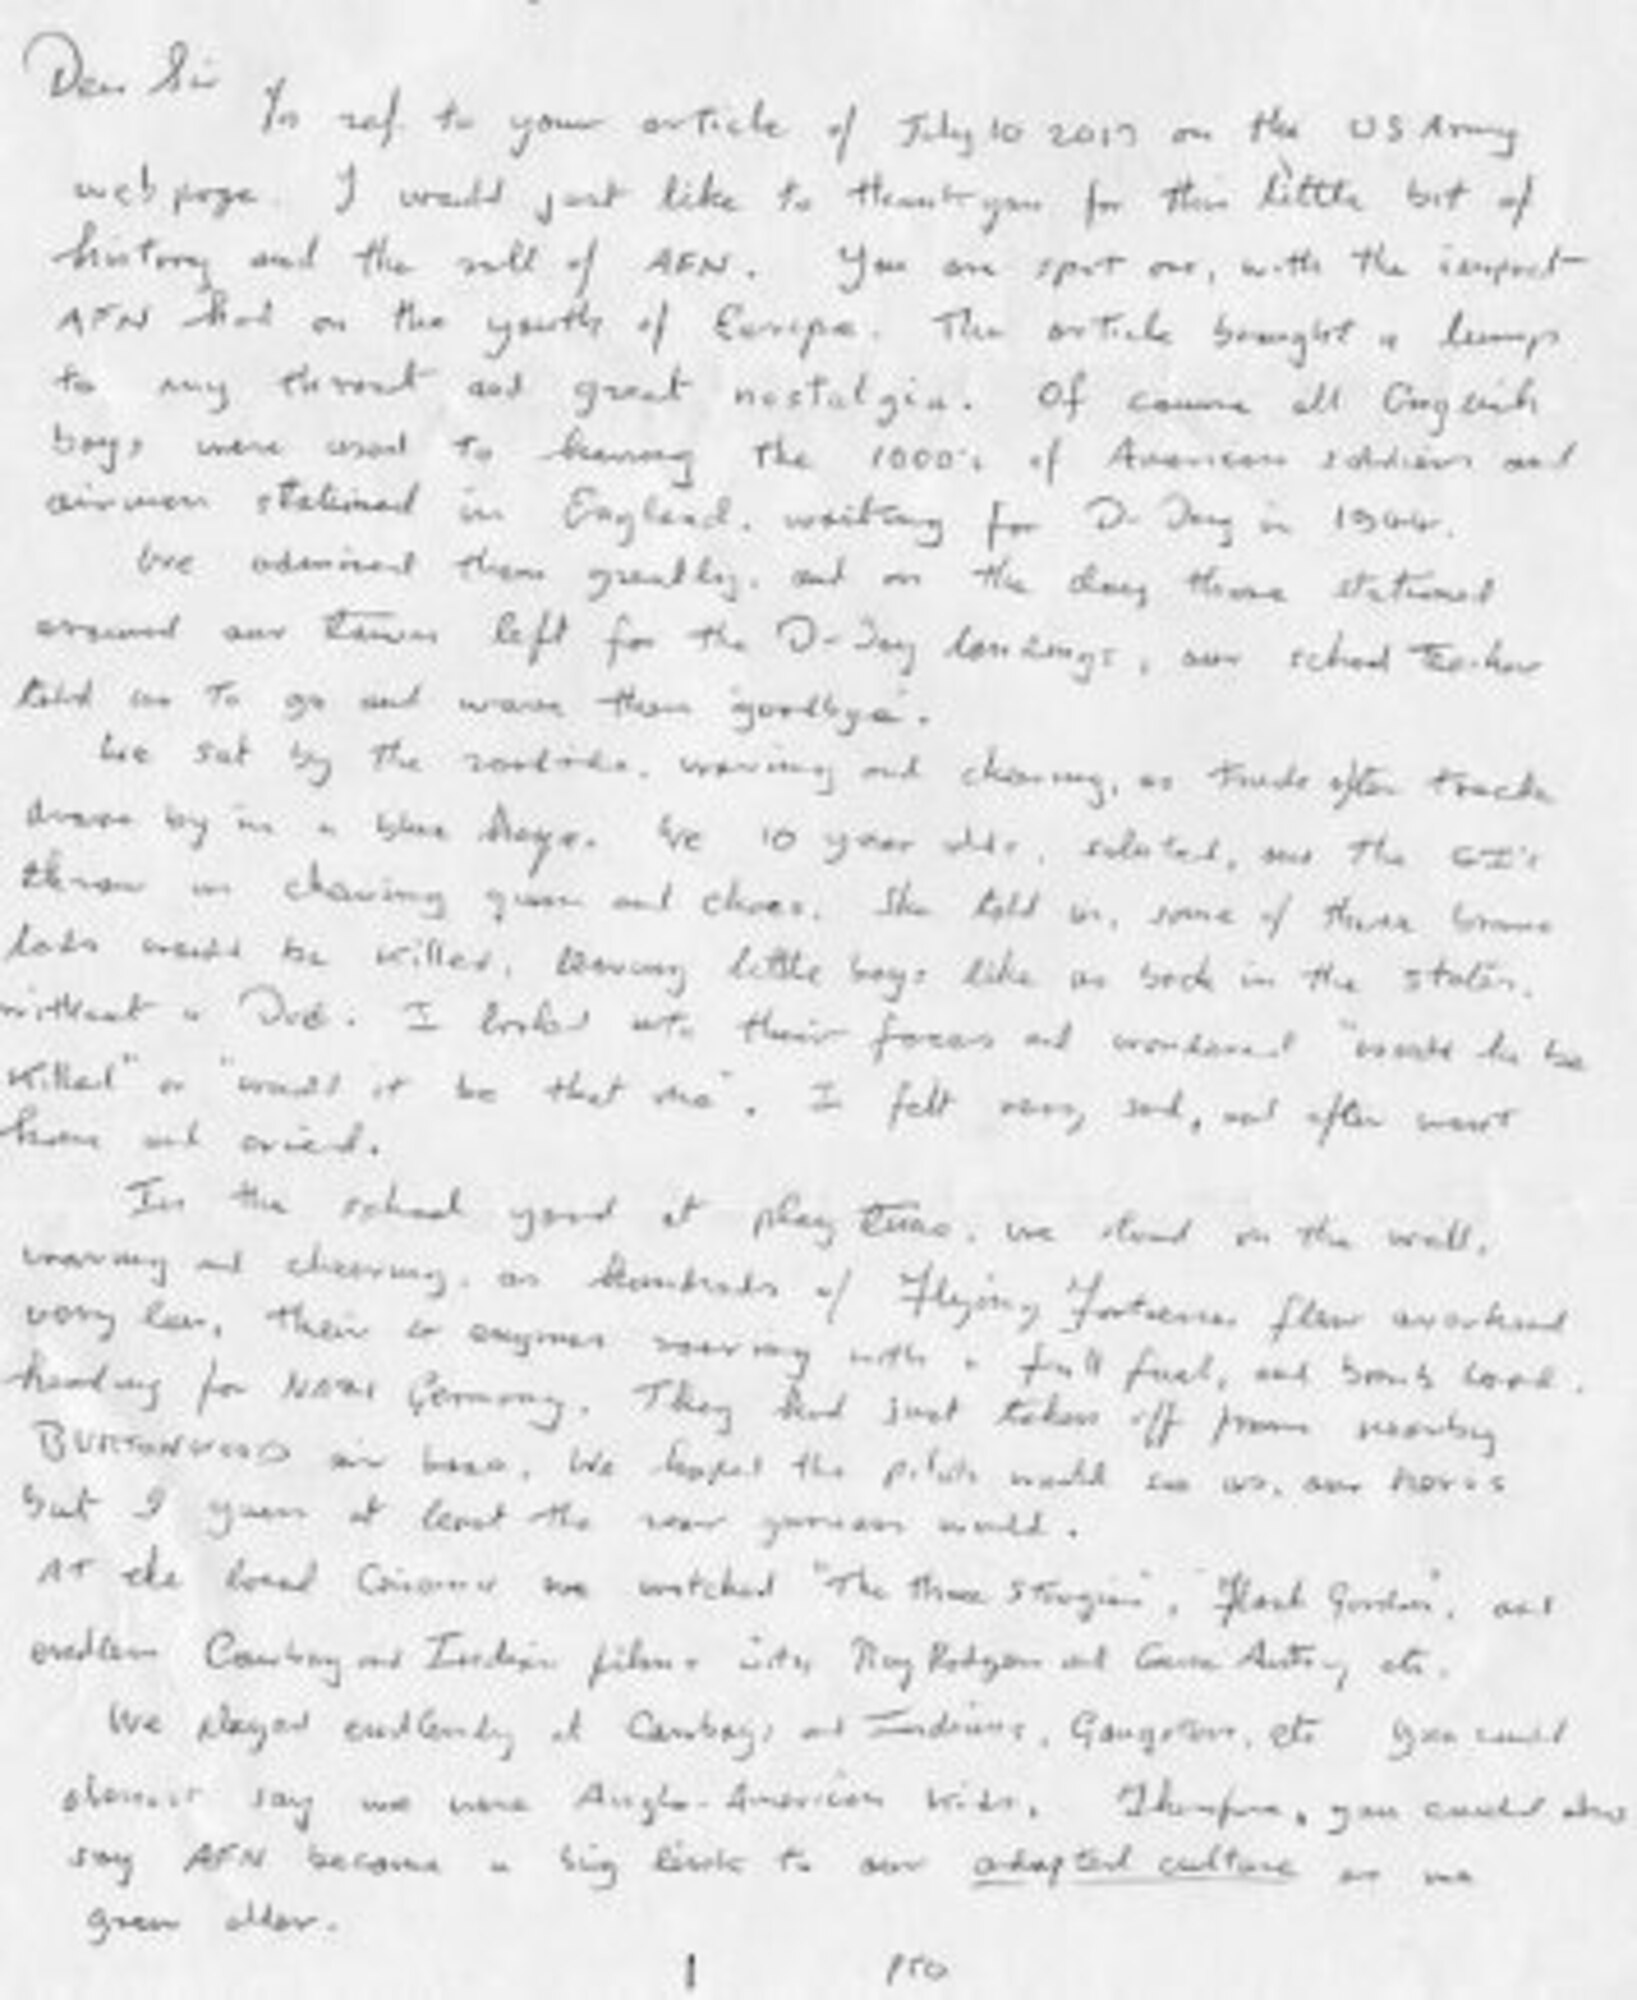 Dear Sir
In ref. to your article of July 10 2017 on the US Army
web page. I would just like to thank you for this little bit of
history and the roll of AFN. You are spot on, with the impact
AFN had on the youth of Europe. The article brought a lump
to my throat and great nostalgia. Of course all English
boys were used to having the 1000's of American soldiers and
airmen stationed in England, waiting for D-Day in 1944.
We admired them greatly, and on the day those stationed
around our town left for the D-Day landings, our school teacher
told us to go and wave them "goodbye".
We sat by the roadside, waving and cheering, as truck after truck
drove by in a blue haze. We 10 year olds, saluted, and the GI's
threw us chewing gum and choc. She told us, some of those brave
lads would be killed, leaving little boys like us back in the states,
without a Dad. I looked into their faces and wondered "would he be
killed" or "would it be that one". I felt very sad, and after went
home and cried.
In the school yard at play time, we stood on the wall,
waving and cheering, as hundreds of Flying Fortresses flew overhead
very low, their engines roaring with a full fuel, and bomb load,
heading for Nazi Germany. They had just taken off from nearby
BURTONWOOD air base. We hoped the pilots would see us, our heros
but I guess at least the rear gunners would.
AT the local Cinema we watched "The Three Stooges", "Flash Gordon", and
endless Cowboy and Indian films with Roy Rodgers and Gene Autry etc.
We played endlessly at Cowboys and Indians, Gangsters, etc You could
almost say we were Anglo-American kids. Therefore, you could also
say AFN became a big link to our adopted culture as we
grew older.
1 PTO